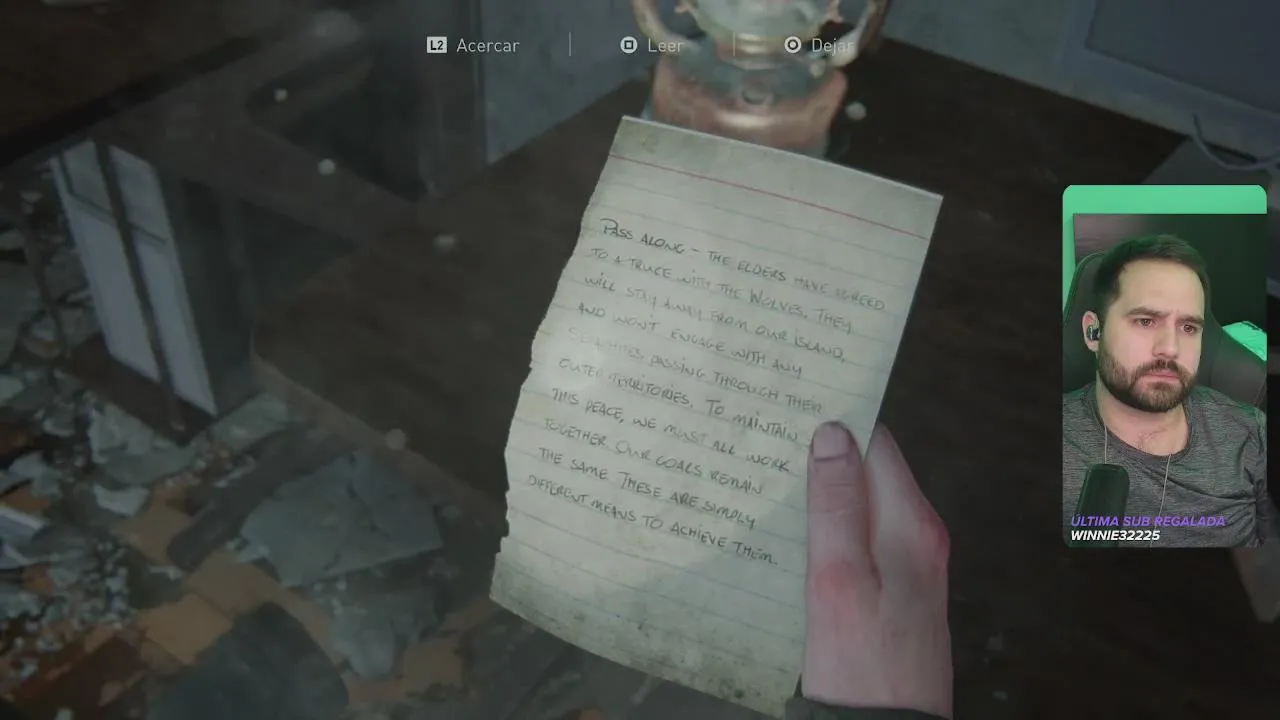 L2 Acercar Leer Dejar
PASS ALONG - THE ELDERS HAVE AGREED
TO A TRUCE WITH THE WOLVES. THEY
WILL STAY AWAY FROM OUR ISLAND,
AND WON'T ENGAGE WITH ANY
PASSING THROUGH THEIR
OUTER TERRITORIES. TO MAINTAIN
THIS PEACE, WE MUST ALL WORK
TOGETHER OUR GOALS REMAIN
THE SAME THESE ARE SIMPLY
DIFFERENT MEANS TO ACHIEVE THEM.
ÚLTIMA SUB REGALADA
WINNIE32225